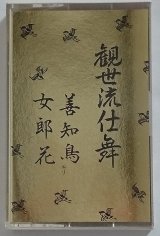 観世流仕舞
善知鳥
女郎花